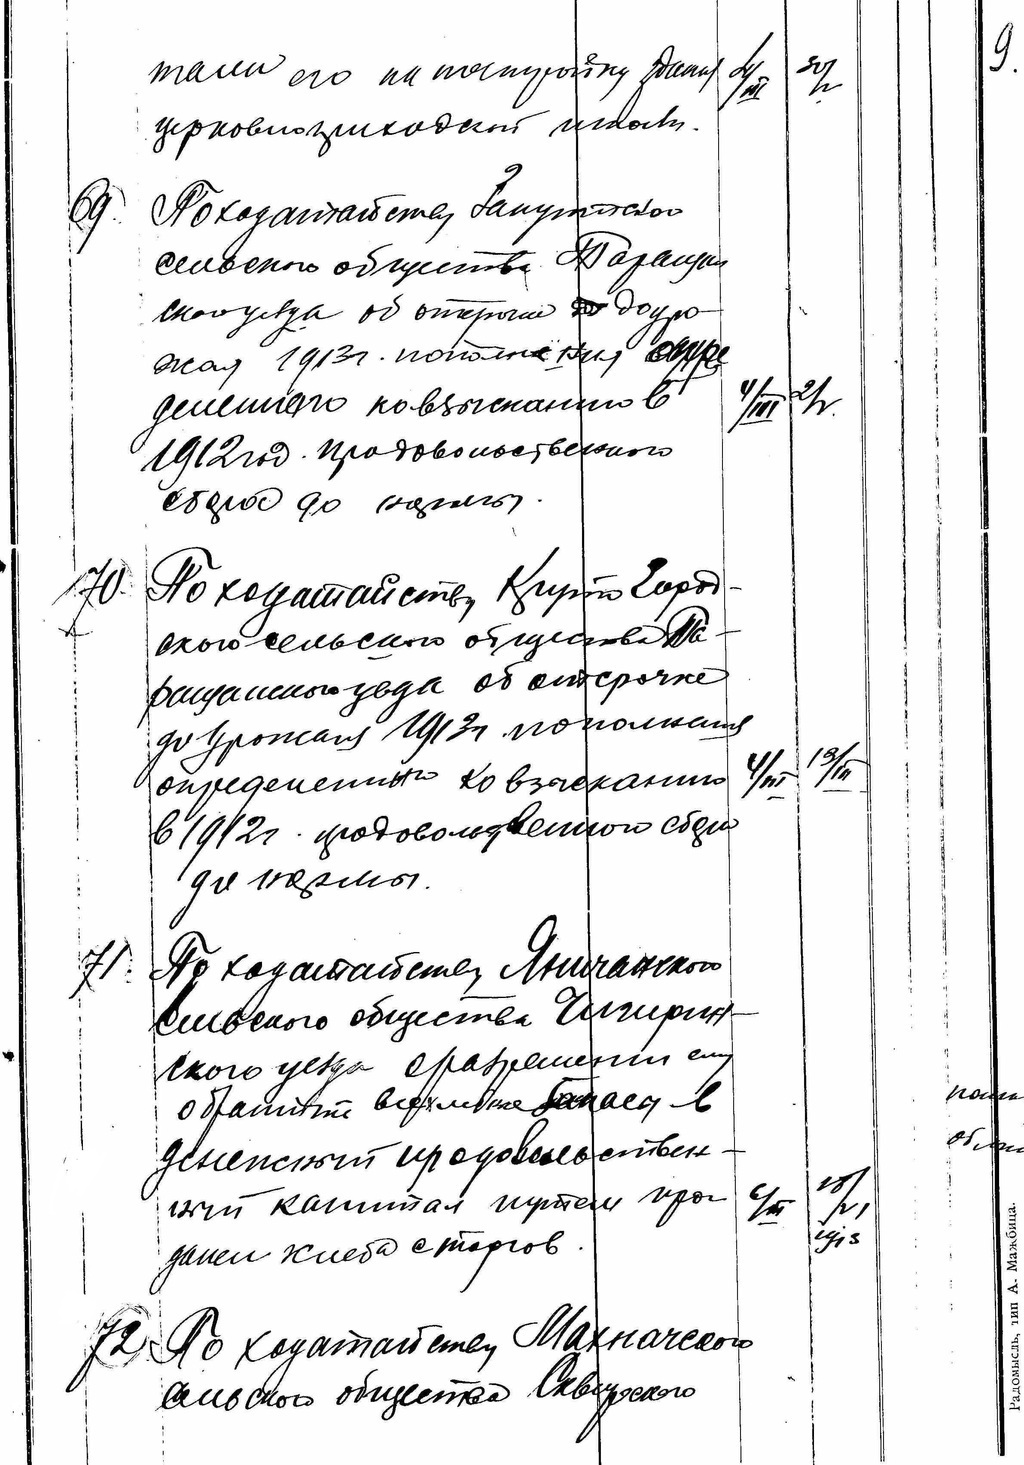 9.
его на постройку здания 4/III
церковноприходской школы.
69. По ходатайству
сельского общества Таращан
ского уезда об отсрочке до уро-
жая 1913 г. пополнения опре
деленного ко взысканию в 4/III
1912 год. продовольственного
сбора до нормы.
70. По ходатайству Город-
ского сельского общества Та-
ращанского уезда об отсрочке
до урожая 1913 г. пополнения
определенного ко взысканию 4/III 19/III
в 1912 г. продовольственного сбора
до нормы.
71. По ходатайству Яничанского
сельского общества Чигирин-
ского уезда о разрешении ему
обратить запаса в
денежный продовольствен-
ный капитал путем про- 6/III
дажи хлеба с торгов. 1913
72. По ходатайству Махначского
сельского общества Сквирского
Радомысль, тип А. Мажбица.